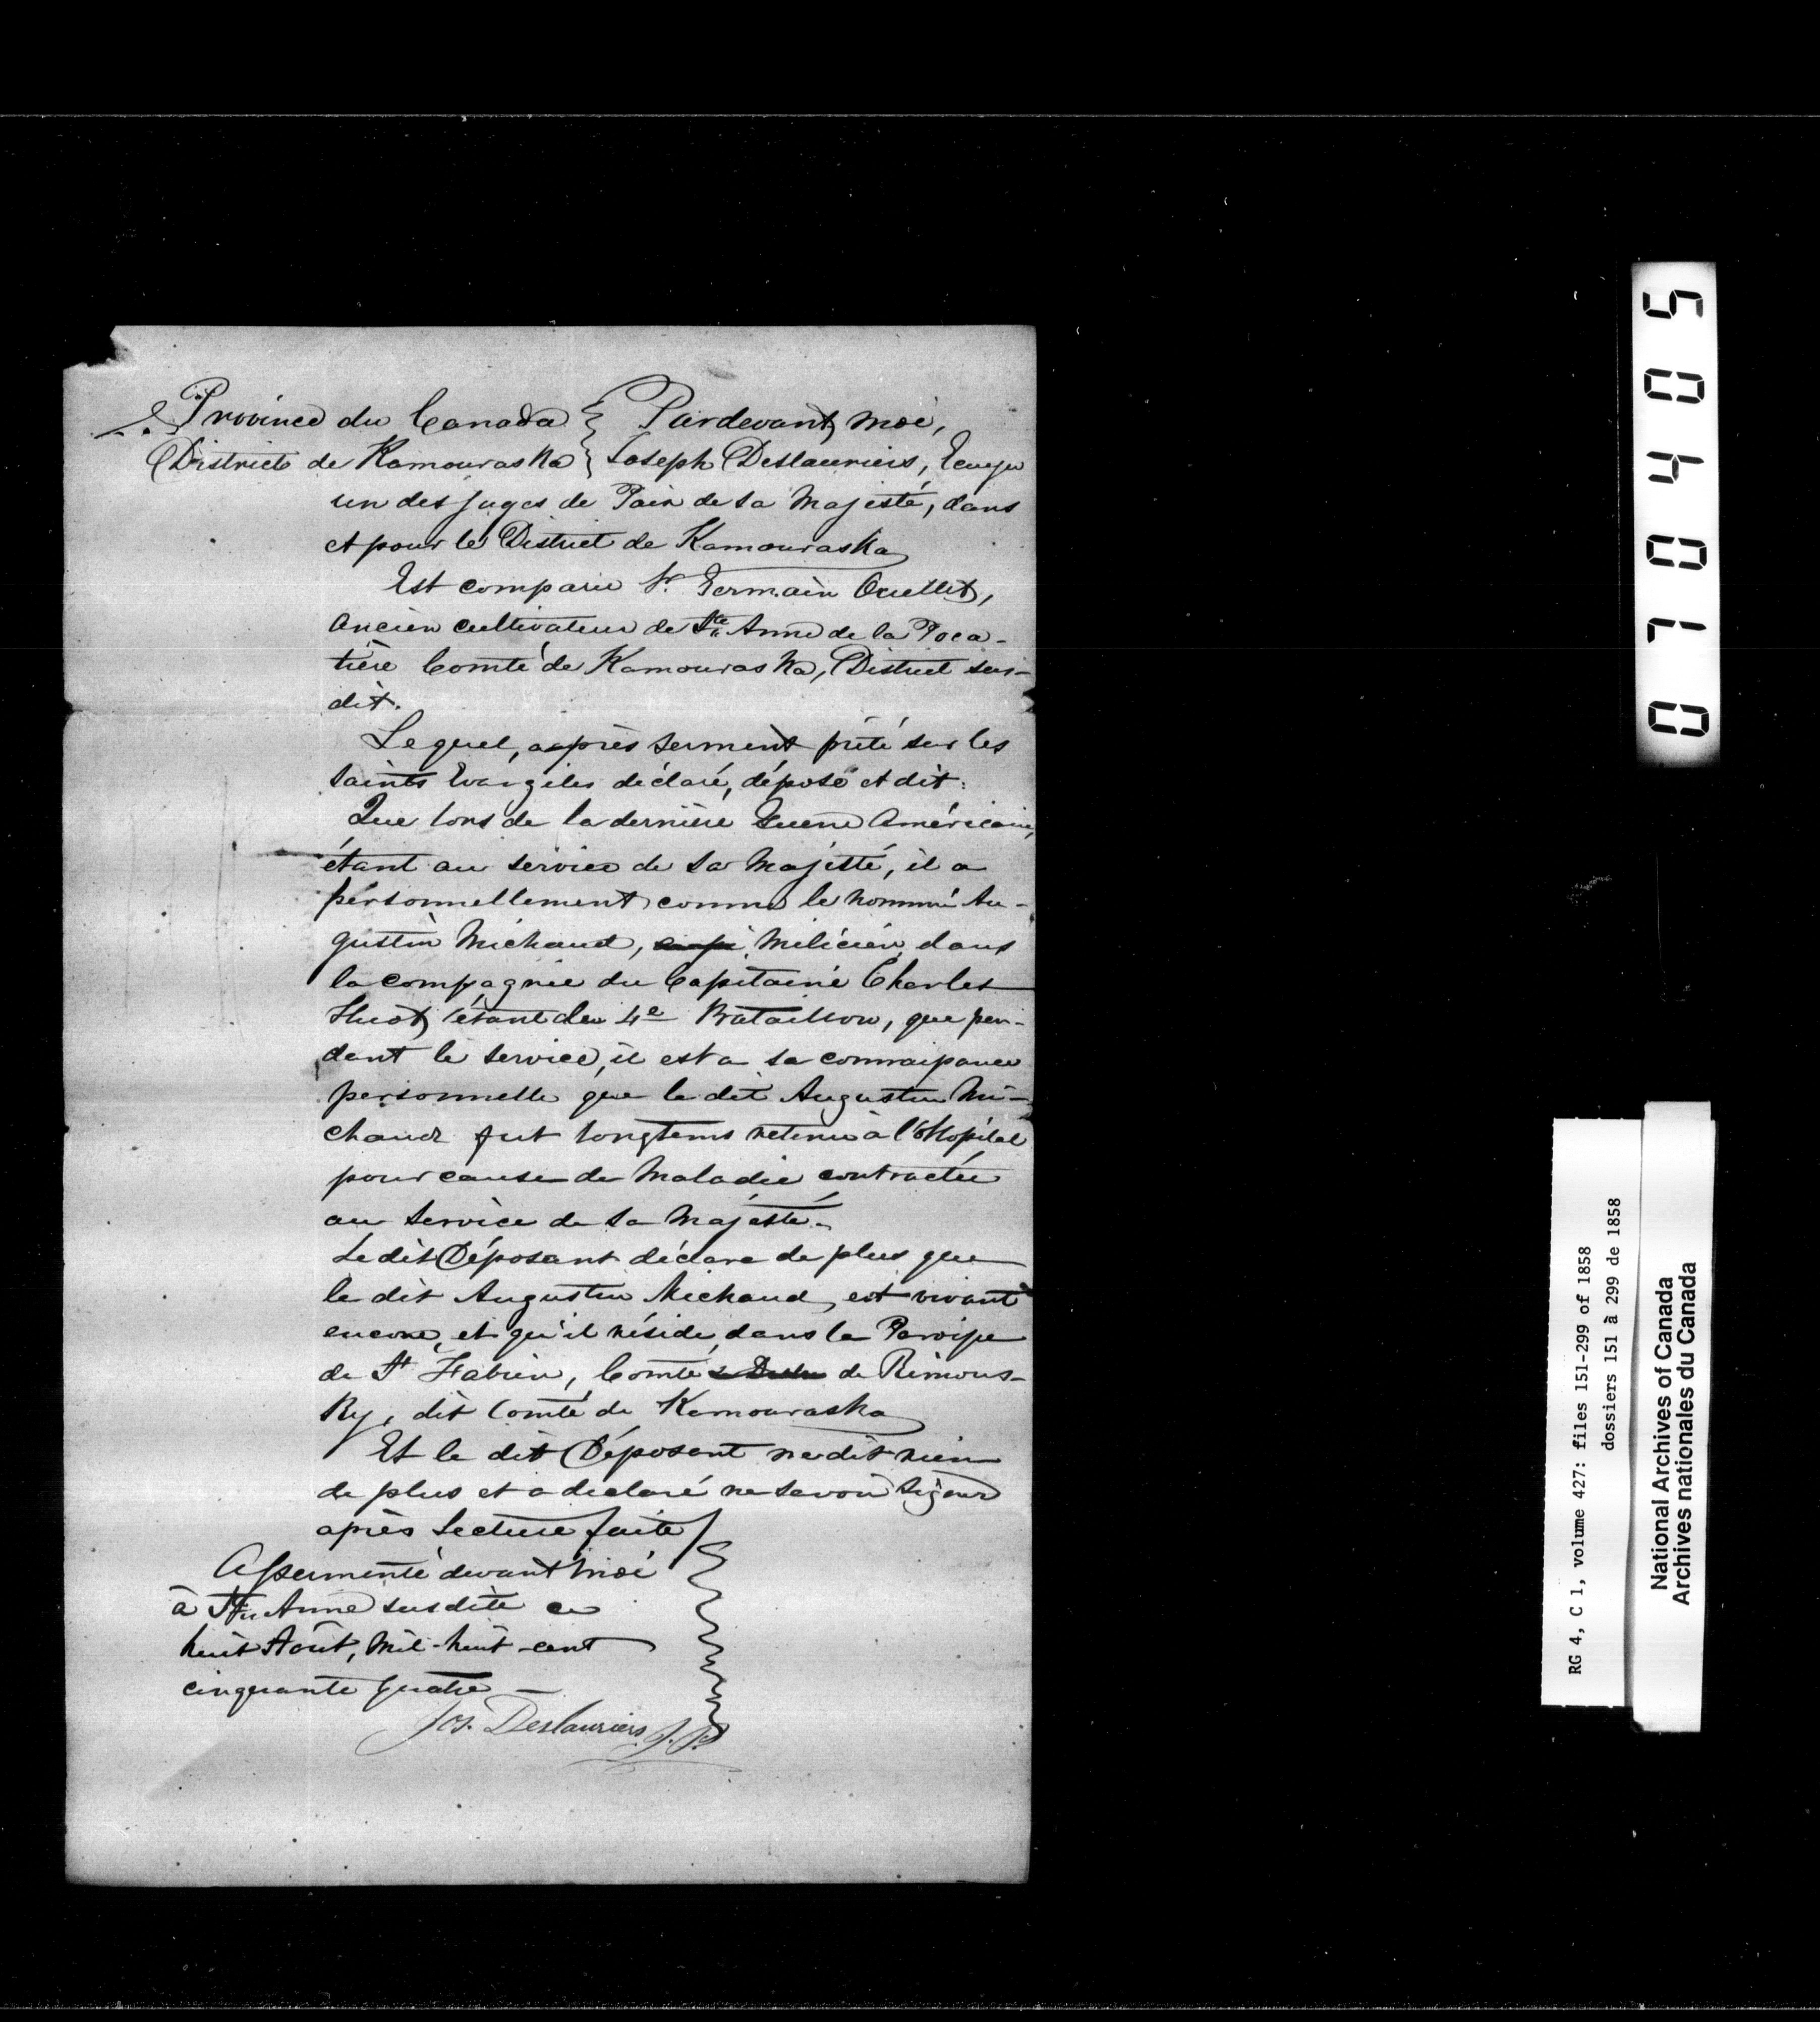 Province du Canada } Pardevant moi,
District de Kamouraska } Joseph Deslauriers, Ecuyer
un des juges de Paix de sa Majesté, dans
et pour le District de Kamouraska
Est comparu Sr. Germain Ouellet,
ancien cultivateur de Ste Anne de la Poca-
tière Comté de Kamouraska, District sus-
dit.
Lequel, après serment prété sur les
saints Evangiles déclare, dépose et dit:
Que lors de la dernière Guerre Américaine,
étant au service de Sa Majesté, il a
personnellement connu le nommé Au-
gustin Michaud, Milicien dans
la compagnie du Capitaine Charles
Huot, étant du 4e Bataillon, que pen-
dant le service, il est a sa connaissance
personnelle que le dit Augustin Mi-
chaud fut longtems retenu à l'Hopital
pour cause de Maladie contractée
au Service de Sa Majésté.
Le dit Déposant déclare de plus que
le dit Augustin Michaud, est vivant
encore, et qu'il réside, dans la Paroisse
de St Fabien, Comté de Rimous-
ky, dit Comté de Kamouraska
Et le dit Déposant ne dit rien
de plus et a déclaré ne savoir signer
après lecture faite
Assermenté devant moi
à Ste Anne susdite ce
huit Août, mil-huit-cent
cinquante quatre —
Jos. Deslauriers J.P.
070405
RG 4, C 1, volume 427: files 151-299 of 1858
dossiers 151 à 299 de 1858
National Archives of Canada
Archives nationales du Canada